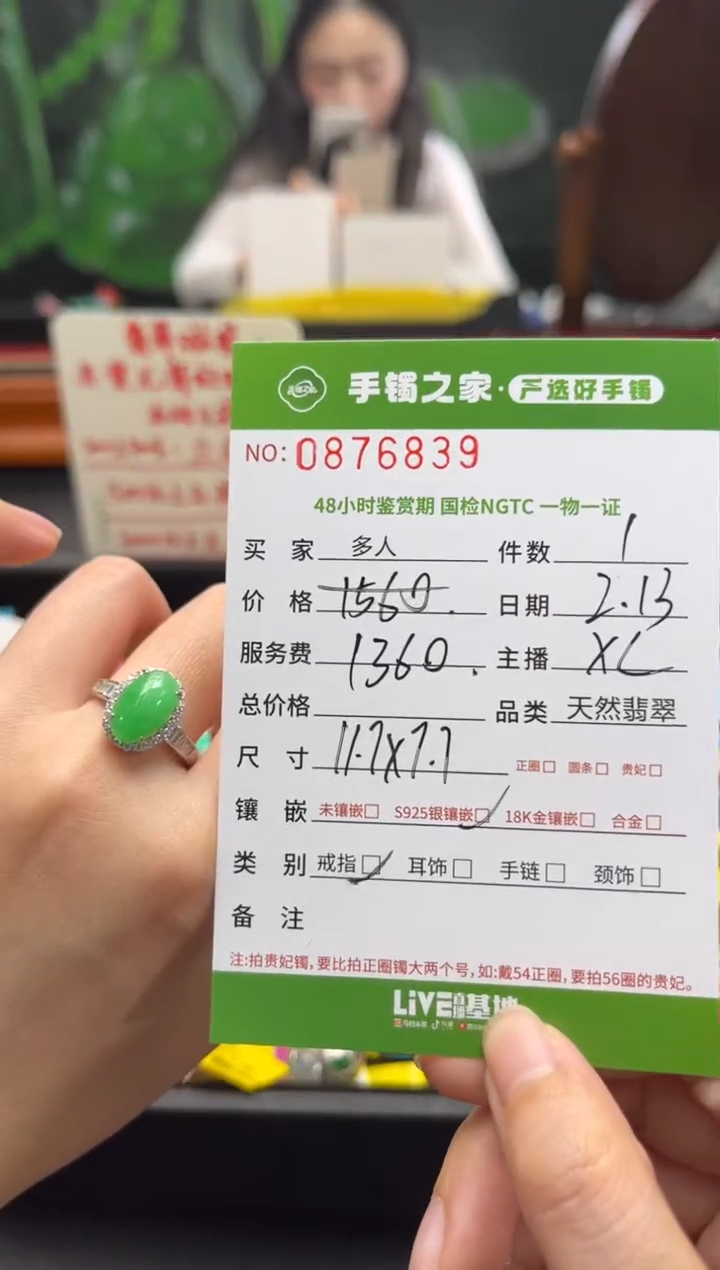 手镯之家·严选好手镯
NO: 0876839
48小时鉴赏期 国检NGTC 一物一证
买家 多人 件数 1
价格 1560. 日期 2.13
服务费 1360. 主播 XL
总价格 品类 天然翡翠
尺寸 11.7X7.7 正圈□ 圆条□ 贵妃□
镶嵌 未镶嵌□ S925银镶嵌☑ 18K金镶嵌□ 合金□
类别 戒指☑ 耳饰□ 手链□ 颈饰□
备注
注:拍贵妃镯,要比拍正圈镯大两个号,如:戴54正圈,要拍56圈的贵妃。
LiVE直播基地